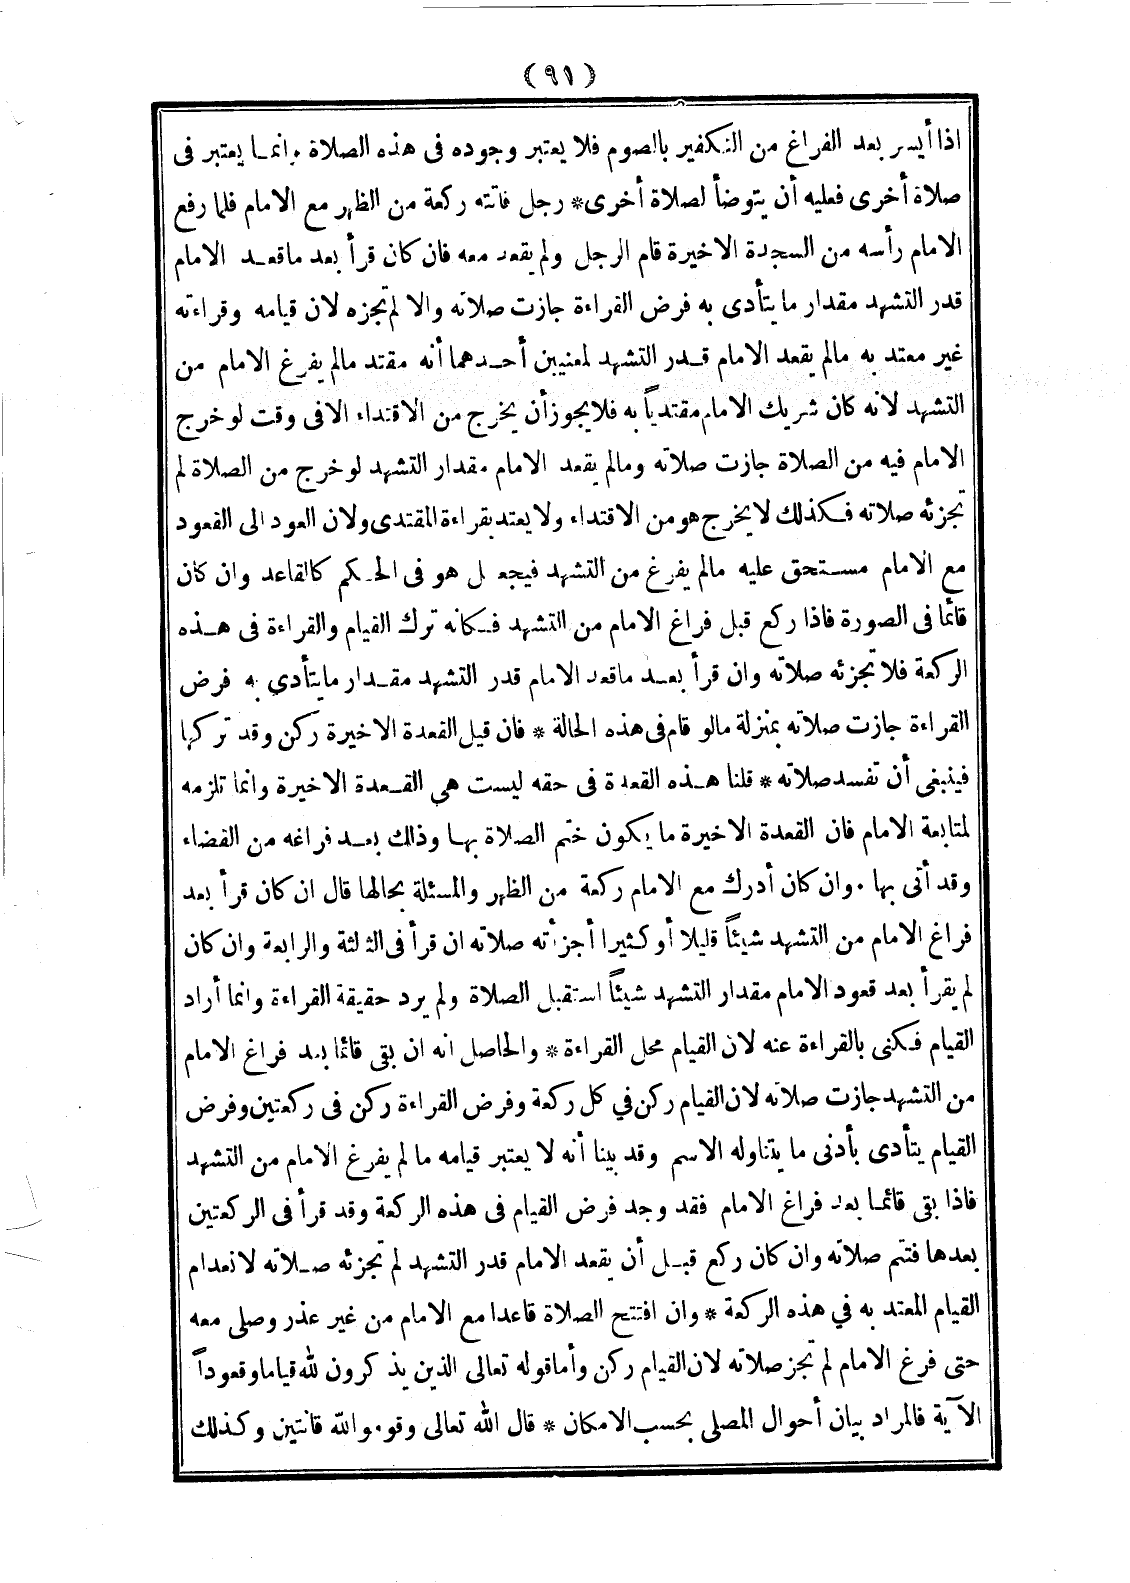 (٩١)
اذا أيسر بعد الفراغ من التكفير بالصوم فلا يعتبر وجوده فى هذه الصلاة وانما يعتبر فى
صلاة أخرى فعليه أن يتوضأ لصلاة أخرى * رجل فاتته ركعة من الظهر مع الامام فلما رفع
الامام رأسه من السجدة الاخيرة قام الرجل ولم يقعد معه فان كان قرأ بعد ماقعد الامام
قدر التشهد مقدار ما يتأدى به فرض القراءة جازت صلاته والا لم تجزه لان قيامه وقراءته
غير معتد به مالم يقعد الامام قدر التشهد لمعنيين أحدهما أنه مقتد مالم يفرغ الامام من
التشهد لانه كان شريك الامام مقتدياً به فلا يجوز أن يخرج من الاقتداء الا فى وقت لو خرج
الامام فيه من الصلاة جازت صلاته ومالم يقعد الامام مقدار التشهد لو خرج من الصلاة لم
تجزئه صلاته فكذلك لا يخرج هو من الاقتداء ولا يعتد بقراءة المقتدى ولان العود الى القعود
مع الامام مستحق عليه مالم يفرغ من التشهد فيجعل هو فى الحكم كالقاعد وان كان
قائما فى الصورة فاذا ركع قبل فراغ الامام من التشهد فكانه ترك القيام والقراءة فى هذه
الركعة فلا تجزئه صلاته وان قرأ بعد ماقعد الامام قدر التشهد مقدار مايتأدي به فرض
القراءة جازت صلاته بمنزلة مالو قام فى هذه الحالة * فان قيل القعدة الاخيرة ركن وقد تركها
فينبغى أن تفسد صلاته * قلنا هذه القعدة فى حقه ليست هي القعدة الاخيرة وانما تلزمه
لمتابعة الامام فان القعدة الاخيرة ما يكون ختم الصلاة بها وذالك بعد فراغه من القضاء
وقد أتى بها . وان كان أدرك مع الامام ركعة من الظهر والمسئلة بحالها قال ان كان قرأ بعد
فراغ الامام من التشهد شيئاً قليلا أو كثيرا أجزأته صلاته ان قرأ فى الثالثة والرابعة وان كان
لم يقرأ بعد قعود الامام مقدار التشهد شيئاً استقبل الصلاة ولم يرد حقيقة القراءة وانما أراد
القيام فكنى بالقراءة عنه لان القيام محل القراءة * والحاصل انه ان بقى قائما بعد فراغ الامام
من التشهد جازت صلاته لان القيام ركن في كل ركعة وفرض القراءة ركن فى ركعتين وفرض
القيام يتأدى بأدنى ما يتناوله الاسم وقد بينا أنه لا يعتبر قيامه ما لم يفرغ الامام من التشهد
فاذا بقى قائما بعد فراغ الامام فقد وجد فرض القيام فى هذه الركعة وقد قرأ فى الركعتين
بعدها فتتم صلاته وان كان ركع قبل أن يقعد الامام قدر التشهد لم تجزئه صلاته لانعدام
القيام المعتد به في هذه الركعة * وان افتتح الصلاة قاعدا مع الامام من غير عذر وصلى معه
حتى فرغ الامام لم تجز صلاته لان القيام ركن وأما قوله تعالى الذين يذكرون لله قياما وقعوداً
الآية فالمراد بيان أحوال المصلى بحسب الامكان * قال الله تعالى وقوموالله قانتين وكذلك